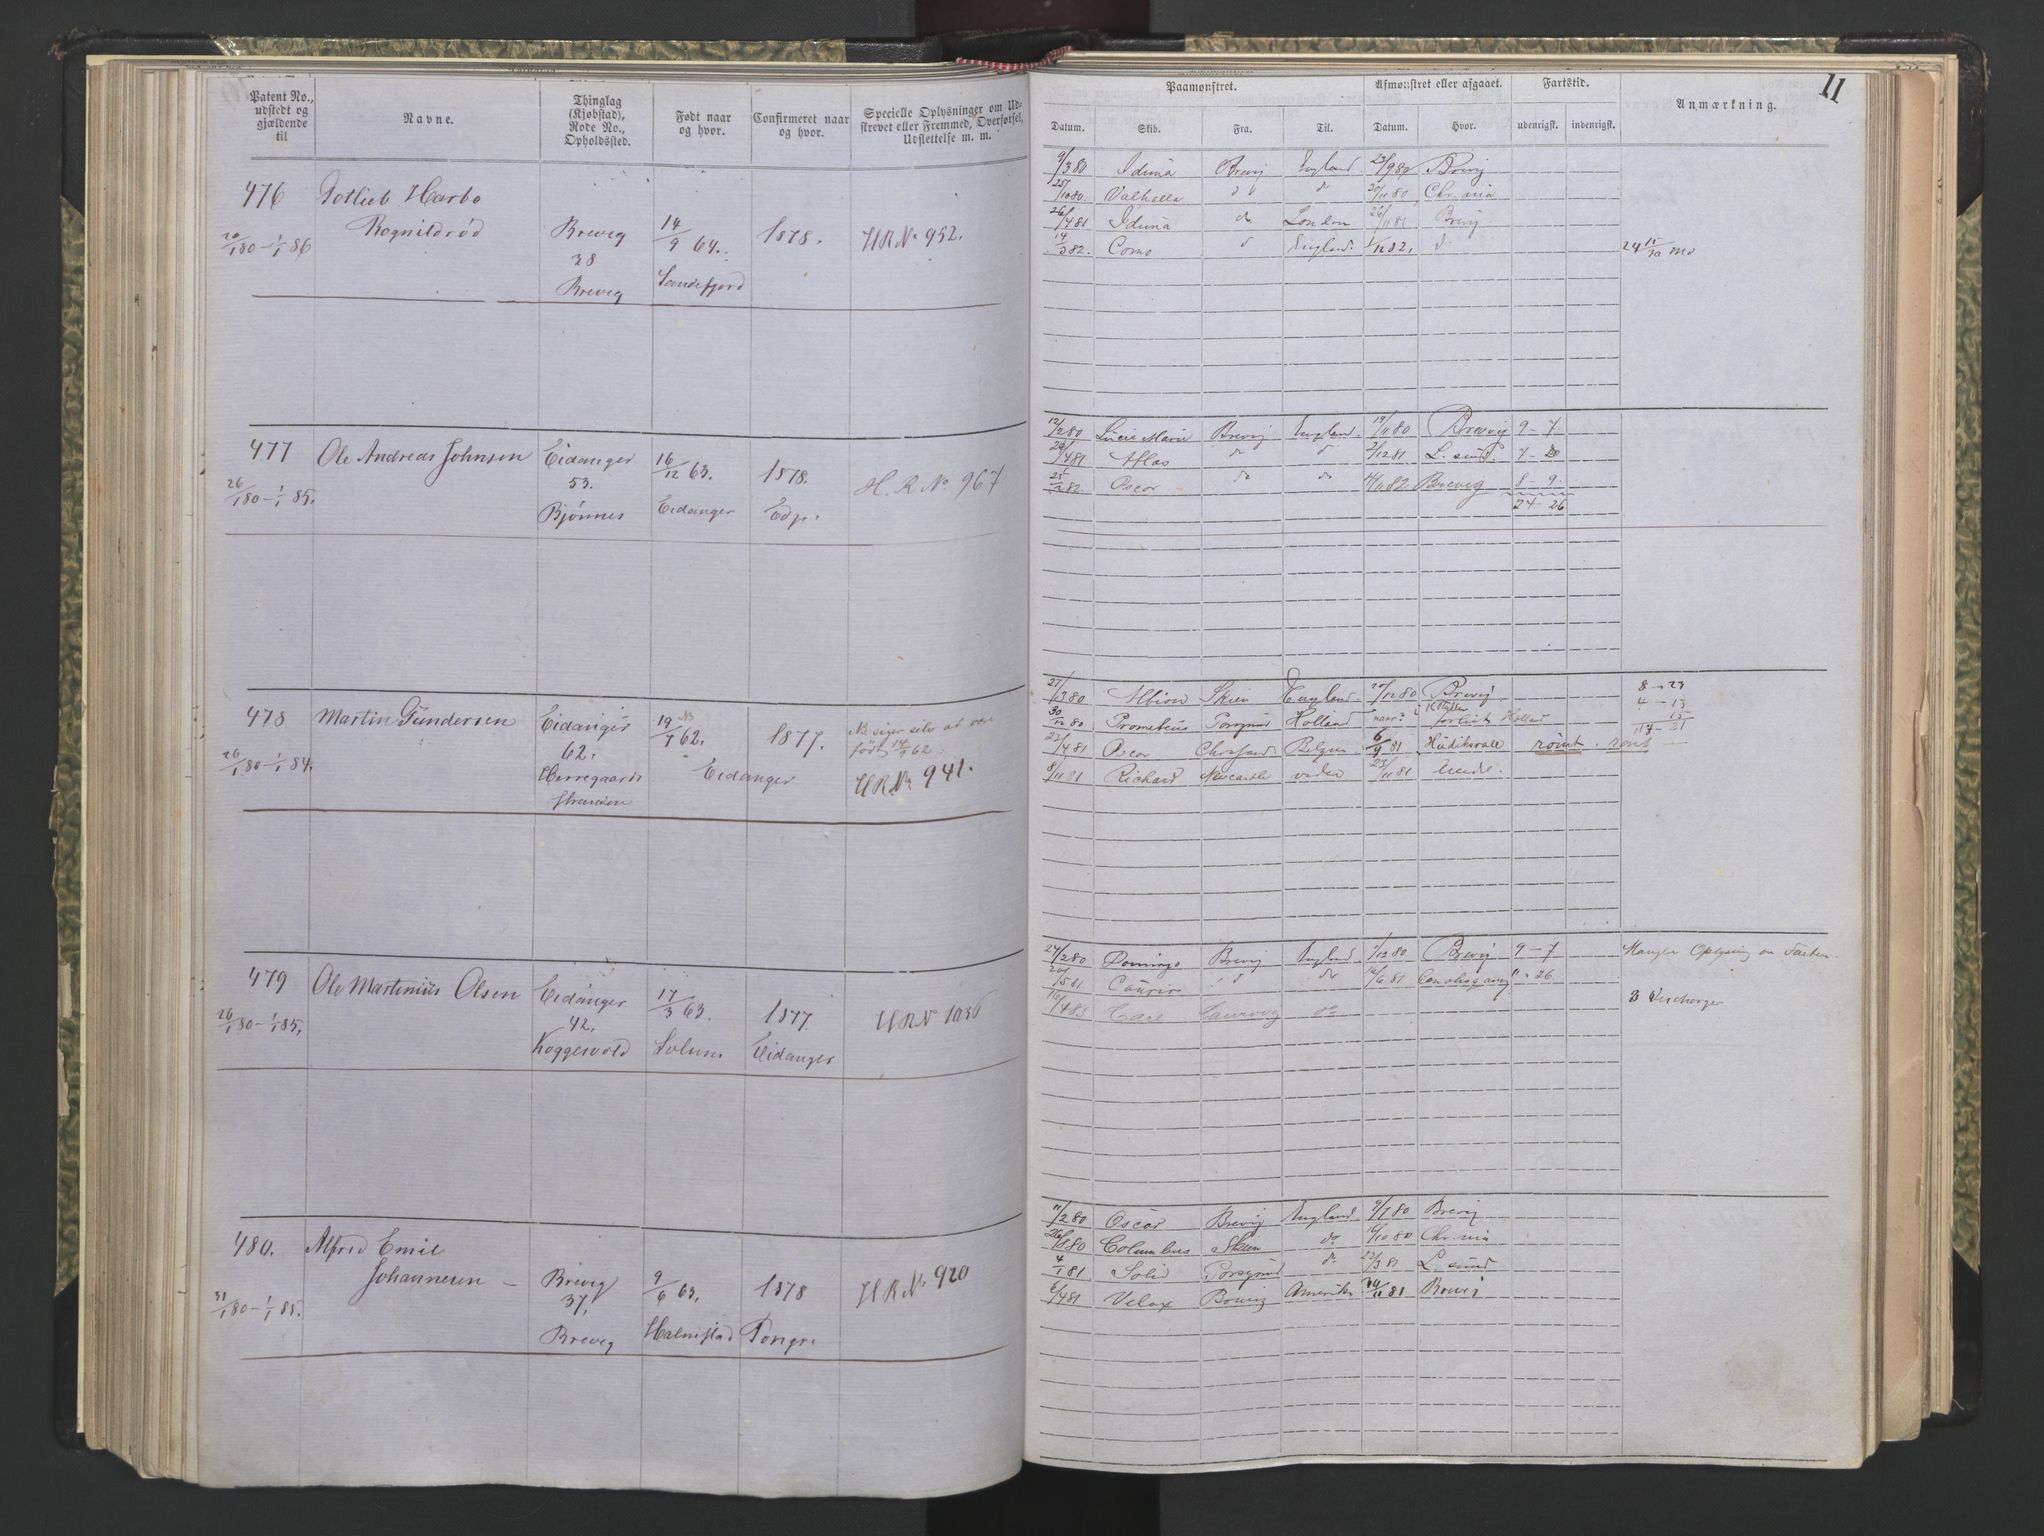 11
Patent No., udstedt og gjældende til
Navne.
Thinglag (Kjøbstad), Rode No., Opholdssted.
Født naar og hvor.
Confirmeret naar og hvor.
Specielle Oplysninger om Udskrevet eller Fremmed, Overførsel, Udslettelse m. m.
Paamønstret.
Afmønstret eller afgaaet.
Fartstid.
Anmærkning.
Datum. Skib. Fra. Til. Datum. Hvor. udenrigst. indenrigst.
476 Gotlieb Harbo
Rognildrød Brevig 14/9 64. 1878. HRNo 952.
20/1 80 – 1/1 86 38
Brevig Sandefjord
9/3 80 Iduna Brevig England 23/9 80 Brevig
25/10 80. Valhalla d d 20/11 80 Chr.ania
26/4 81 Iduna do London 26/11 81 Brevig
14/3 82. Como d England. 1/11 82. d.
24 11/30 Md
477 Ole Andreas Johnsen Eidanger 16/12 63. 1878. H.R.No. 967
26/1 80 – 1/1 85. 53.
Bjønnes Eidanger Edgr.
12/2 80 Lucie Marie Brevig England. 19/11 80 Brevig 9 – 7
23/4 81 Atlas do do 2/12 81 L. sund. 7 – 20
25/2 82. Oscar do do 4/11 82 Brevig 8 – 9.
24 – 26
478 Martin Gundersen Eidanger 19/7 62. 1877. Nb siger selv at være
født 14/3 62.
26/1 80 – 1/1 84. 62.
Herregaards Eidanger HRNo 941.
stranden
27/3 80 Albion Skien England. 20/12 80 Brevig 8 – 23
30/12 80 Prometeus Porsgrund Holland naar? forlist Holland 4 – 13
23/4 81 Oscar Chrssand Belgien 6/9 81 Hudiksvall rømt rømt
8/11 81 Richard Newcastle 23/11 81 Arendl.
479 Ole Martinius Olsen Eidanger 17/3 63. 1877 HRNo 1036
26/1 80 – 1/1 85. 42.
Koggesvold Solum Eidanger
24/2 80 Domingo Brevig England 1/12 80 Brevig 9 – 7 Mangler Oplysning om Farten
20/5 81 d do 14/6 81
16/4 83 Laurvig do
480. Alfred Emil
Johannesen – Brevig 9/6 63. 1878 HRNo 920
31/1 80 – 1/1 85. 37,
Brevig Halmstad Porsgr.
11/2 80 Oscar Brevig England 9/7 80 Brevig
26/8 80 Columbus Skien do 16/10 80 Chr.ania
4/1 81 Solid Porsgrund do 22/3 81 L. sund
6/4 81 Velox Brevig Amerika 30/11 81 Brevig